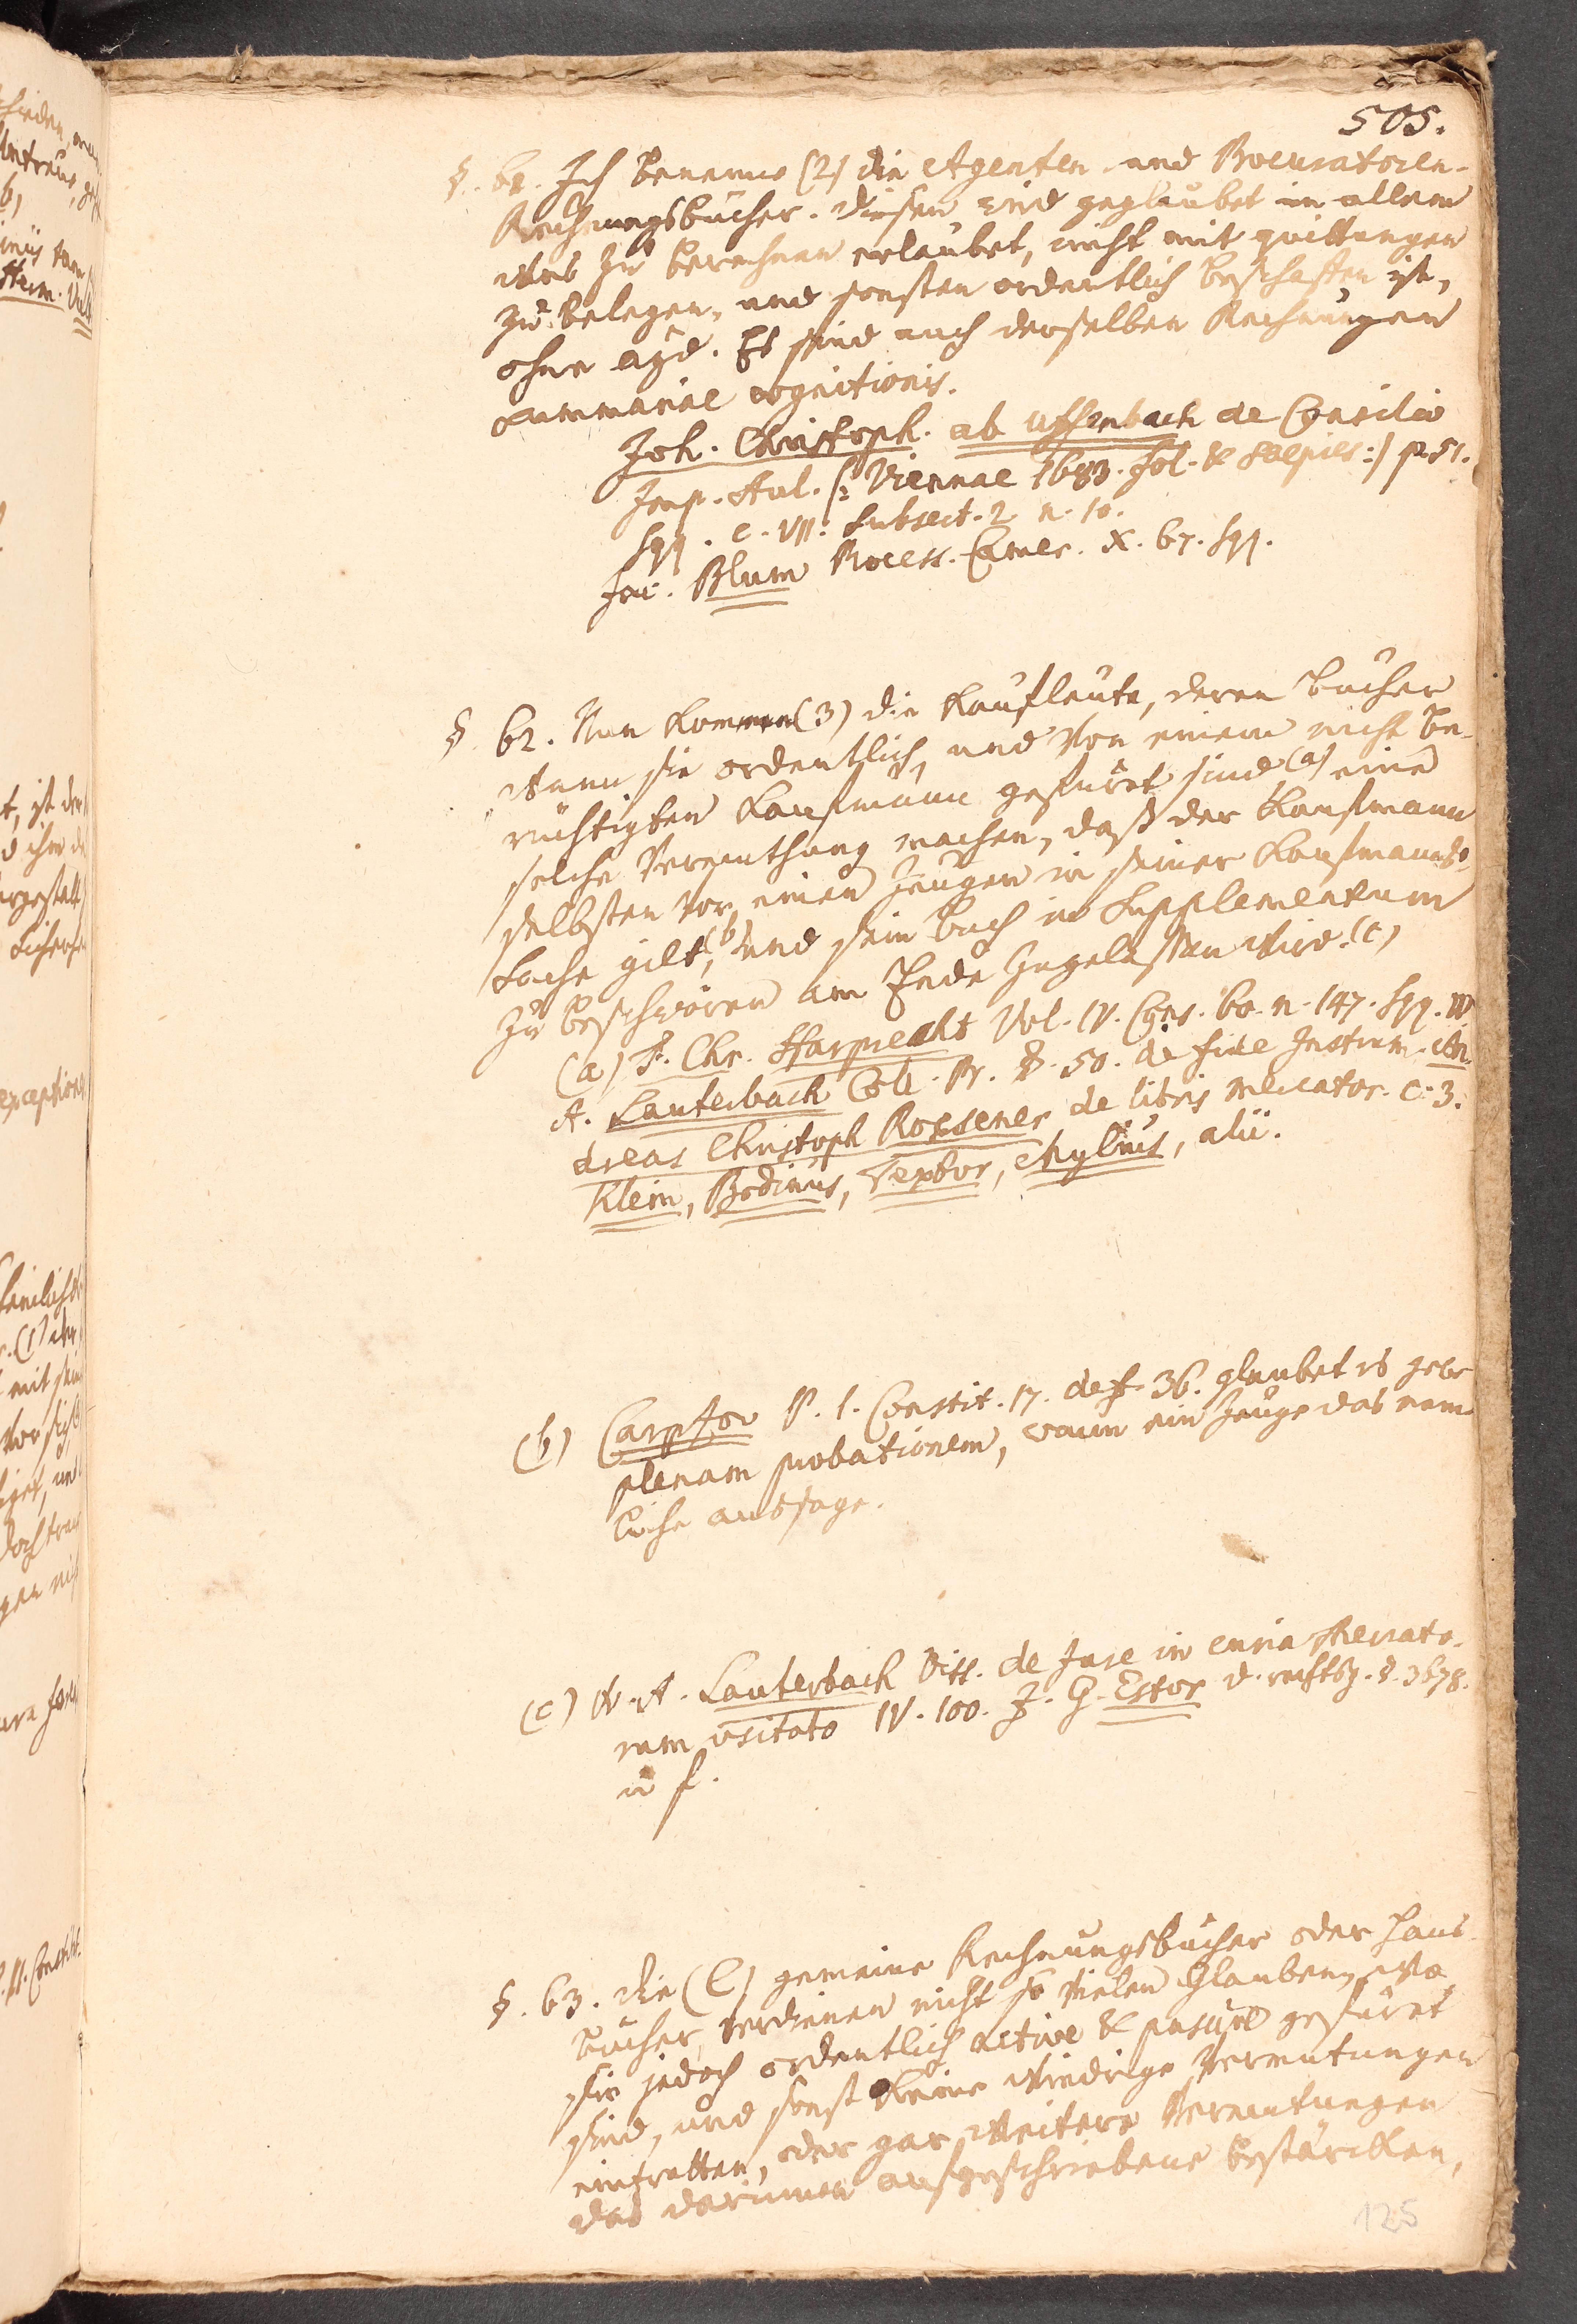 505.
§. 61. Ich benenne (2) die Agenten und Procuratoren-
Rechnungsbücher. diesen wird geglaubet in allem
was zu berechnen erlaubet, nicht mit quittungen
zu belegen, und sonsten ordentlich beschaffen ist,
ohne ayd. Es sind auch derselben Rechnungen
summariae cognitionis.
Joh. Christoph. ab Uffenbach de Consilio
Imp. Aul. (: Viennae 1683. fol. & saepies :) p. 51.
sqq. c. VII. subsect. 2 n. 10.
Jac. Blum Process. Camer. X. 67. sqq.
§ 62. Nun kommen (3) die Kaufleute, deren bücher
wann sie ordentlich, und von einem nicht be-
rüchtigten Kaufmann geführet sind (a) eine
solche Vermuthung machen, daß der Kaufmann
selbsten vor einen Zeugen in seiner Kaufmanns-
Sache gilt, (b) und sein buch in Supplementum
zu beschwören am Ende zugelassen wird. (c)
(a) F. Chr. Harprecht Vol. IV. Cons. 60. n. 147. sqq. W
A. Lauterbach Coll. Pr. §. 50. de fide Instrum. An-
dreas Christoph Roesener de libris mercator. c. 3.
Klein, Bodinus, Textor, Mylius, alii.
(b) Carpzov P. 1. Constit. 17. def. 36. glaubet es gebe
plenam probationem, wann ein Zeuge das nem-
liche aussage.
(c) W. A. Lauterbach Diss. de Jure in curia Mercato-
rum usitato IV. 100. J. G. Estor d. rechtsg. §. 3678.
u f.
§. 63. die (C) gemeine Rechnungsbücher oder Haus-
bücher verdienen nicht so vielen Glauben, wo
sie jedoch ordentlich active & passive geführet
sind, und sonst keine wiedrige Vermutungen
eintretten, oder gar weitere Vermutungen
das darinnen aufgeschriebene bestärcken,
125